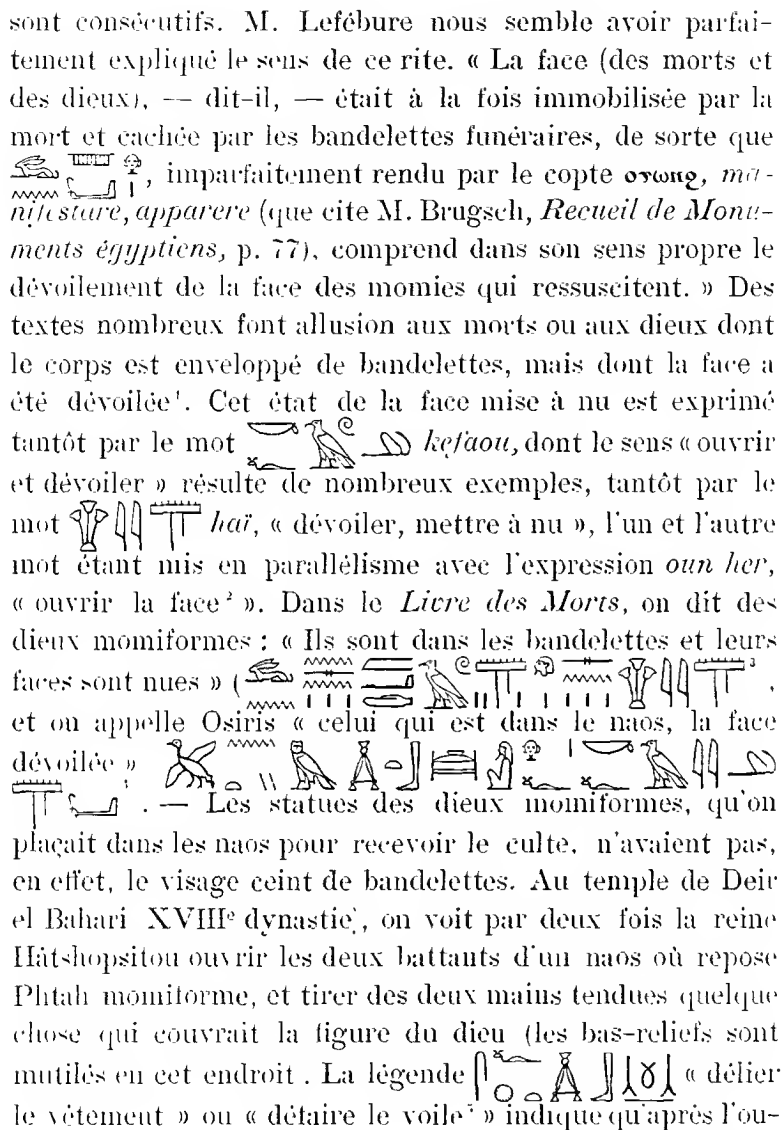 sont consécutifs. M. Lefébure nous semble avoir parfai-
tement expliqué le sens de ce rite. « La face (des morts et
des dieux), — dit-il, — était à la fois immobilisée par la
mort et cachée par les bandelettes funéraires, de sorte que
, imparfaitement rendu par le copte ⲟⲩⲱⲛϩ, ma-
nifestare, apparere (que cite M. Brugsch, Recueil de Monu-
ments égyptiens, p. 77), comprend dans son sens propre le
dévoilement de la face des momies qui ressuscitent. » Des
textes nombreux font allusion aux morts ou aux dieux dont
le corps est enveloppé de bandelettes, mais dont la face a
été dévoilée¹. Cet état de la face mise à nu est exprimé
tantôt par le mot kefaou, dont le sens « ouvrir
et dévoiler » résulte de nombreux exemples, tantôt par le
mot haï, « dévoiler, mettre à nu », l'un et l'autre
mot étant mis en parallélisme avec l'expression oun her,
« ouvrir la face² ». Dans le Livre des Morts, on dit des
dieux momiformes : « Ils sont dans les bandelettes et leurs
faces sont nues » ( ³,
et on appelle Osiris « celui qui est dans le naos, la face
dévoilée »
. — Les statues des dieux momiformes, qu'on
plaçait dans les naos pour recevoir le culte, n'avaient pas,
en effet, le visage ceint de bandelettes. Au temple de Deir
el Bahari XVIIIᵉ dynastie), on voit par deux fois la reine
Hâtshopsitou ouvrir les deux battants d'un naos où repose
Phtah momiforme, et tirer des deux mains tendues quelque
chose qui couvrait la figure du dieu (les bas-reliefs sont
mutilés en cet endroit . La légende « délier
le vêtement » ou « défaire le voile⁵ » indique qu'après l'ou-